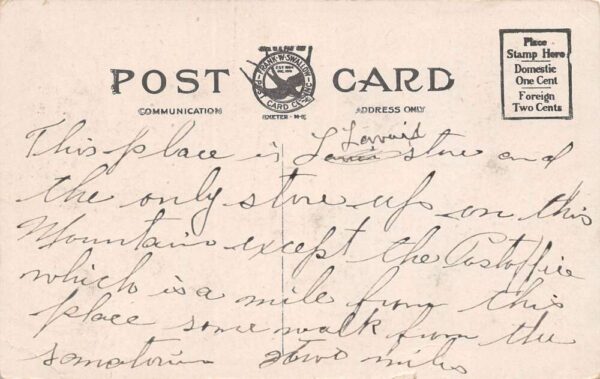 POST CARD
FRANK W. SWALLOW
POST CARD CO.
INC.
EXETER - N-H
COMMUNICATION
ADDRESS ONLY
Place
Stamp Here
Domestic
One Cent
Foreign
Two Cents
This place is store and
the only store up on this
Mountain except the Postoffice
which is a mile from this
place some walk from the
sanatorium two miles